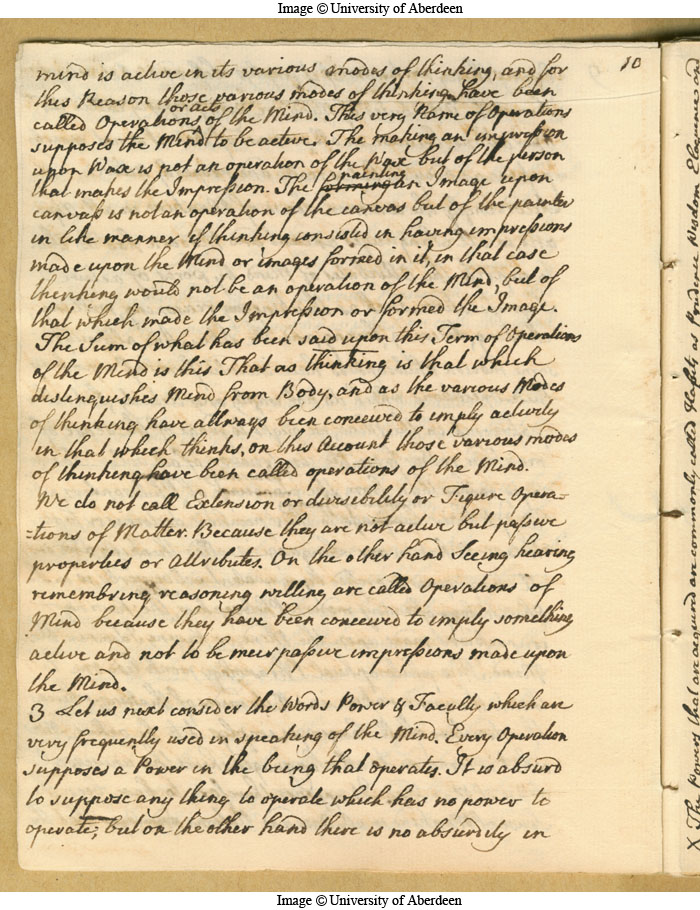 Image © University of Aberdeen
10
mind is active in its various modes of thinking, and for
this Reason those various modes of thinking have been
or acts
called Operations of the Mind. This very Name of Operations
supposes the Mind to be active. The making an impression
upon Wax is not an operation of the Wax but of the person
painting
that makes the Impression. The forming an Image upon
canvass is not an operation of the canvas but of the painter
in like manner if thinking consisted in having impressions
made upon the Mind or images formed in it, in that case
thinking would not be an operation of the Mind, but of
that which made the Impression or formed the Image.
The Sum of what has been said upon this Term of Operations
of the Mind is this That as thinking is that which
distinguishes Mind from Body, and as the various Modes
of thinking have allways been conceived to imply activity
in that which thinks, on this Account those various modes
of thinking have been called operations of the Mind.
We do not call Extension or divisibility or Figure Opera=
=tions of Matter. Because they are not active but passive
properties or Attributes. On the other hand Seeing hearing
remembring reasoning willing are called Operations of
Mind because they have been conceived to imply something
active and not to be meer passive impressions made upon
the Mind.
3 Let us next consider the Words Power & Faculty which are
very frequently used in speaking of the Mind. Every Operation
supposes a Power in the being that operates. It is absurd
to suppose any thing to operate which has no power to
operate; but on the other hand there is no absurdity in
X The powers that are acquired are commonly called Habits, as Prudence Wisdom Eloquence and
Image © University of Aberdeen